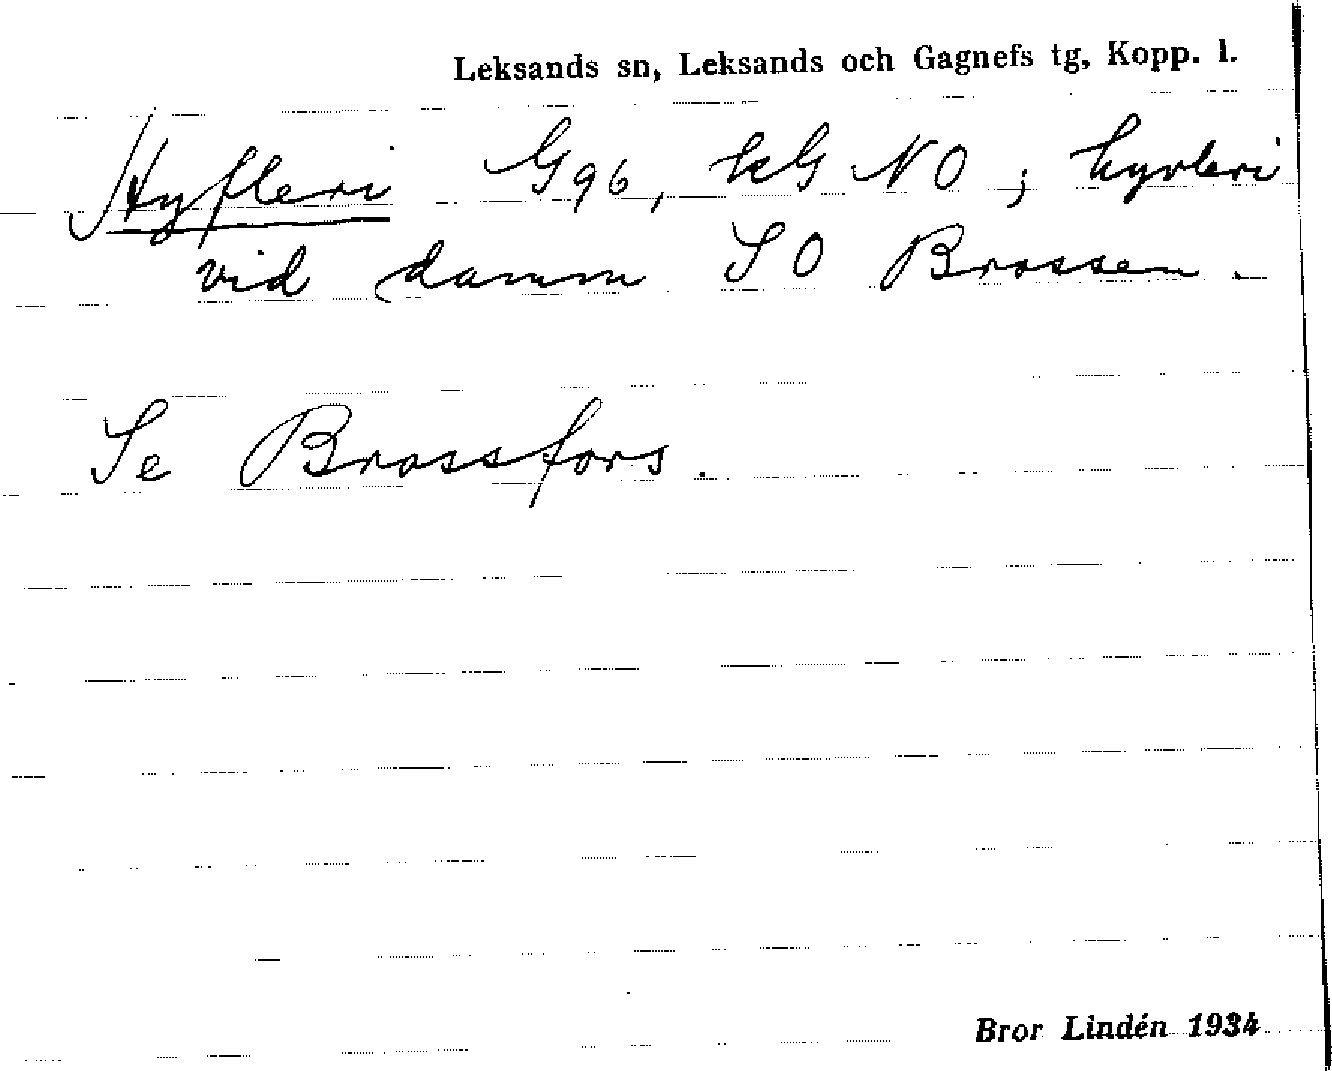 Leksands sn, Leksands och Gagnefs tg, Kopp. l.
Hyfleri G96, kG NO ; hyvleri
vid damm SO Brossen .
Se Brossfors .
Bror Lindén 1934